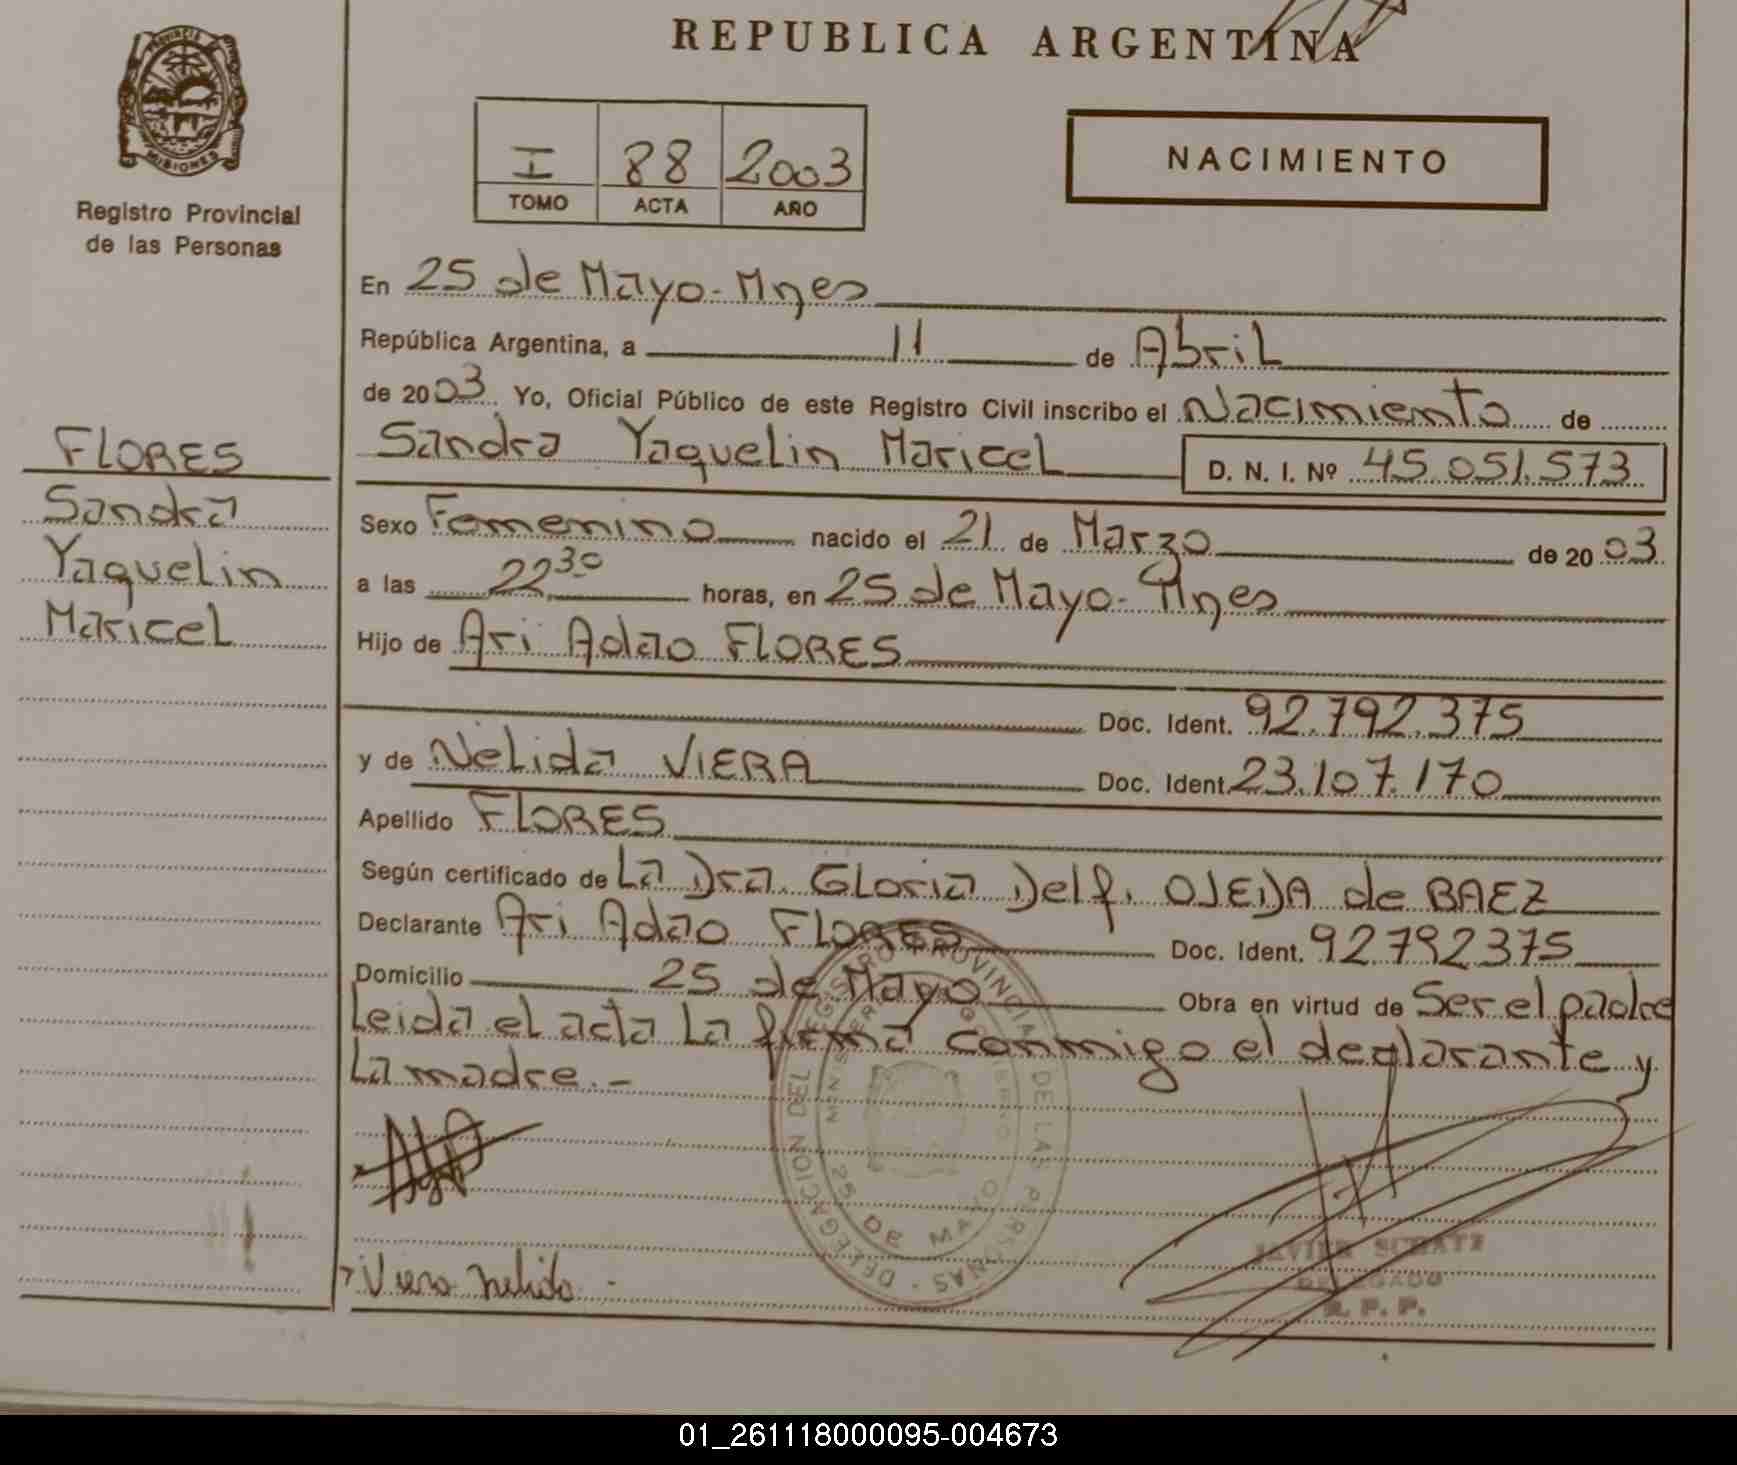 REPUBLICA ARGENTINA
PROVINCIA DE
MISIONES
Registro Provincial
de las Personas
I 88 2003
TOMO ACTA AÑO
NACIMIENTO
En 25 de Mayo-Mnes
República Argentina, a 11 de Abril
de 2003. Yo, Oficial Público de este Registro Civil inscribo el Nacimiento de
Sandra Yaquelin Maricel D. N. I. Nº 45.051.573
FLORES
Sandra
Yaquelin
Maricel
Sexo Femenino nacido el 21 de Marzo de 2003
a las 22 30 horas, en 25 de Mayo-Mnes
Hijo de Ari Adao FLORES
Doc. Ident. 92.792.375
y de Nelida VIERA Doc. Ident. 23.107.170
Apellido FLORES
Según certificado de La Dra. Gloria Delf. OJEDA de BAEZ
Declarante Ari Adao FLORES Doc. Ident. 92.792.375
Domicilio 25 de Mayo Obra en virtud de Ser el padre
Leida el acta La firma conmigo el declarante y
La madre.-
DELEGACION DEL REGISTRO PROVINCIAL DE LAS PERSONAS
25 DE MAYO
Viera Nelida
JAVIER SCHATZ
DELEGADO
R. P. P.
01_261118000095-004673